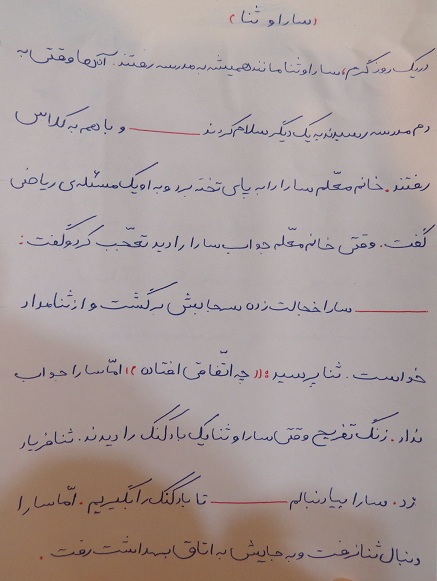 (سارا و ثنا)
در یک روز گرم، سارا و ثنا مانند همیشه به مدرسه رفتند. آن‌ها وقتی به
دم مدرسه رسیدند به یک دیگر سلام کردند ______ و با هم به کلاس
رفتند. خانم معلّم سارا را به پای تخته برد و به او یک مسئله‌ی ریاضی
گفت. وقتی خانم معلّم جواب سارا را دید تعجّب کرد و گفت:
______ سارا خجالت زده سر جایش برگشت و از ثنا مداد
خواست. ثنا پرسید: ((چه اتّفاقی افتاده؟)) امّا سارا جواب
نداد. زنگ تفریح وقتی سارا و ثنا یک بادکنک را دیدند. ثنا فریاد
زد. سارا بیا دنبالم ______ تا بادکنک را بگیریم. امّا سارا
دنبال ثنا نرفت و به جایش به اتاق بهداشت رفت.